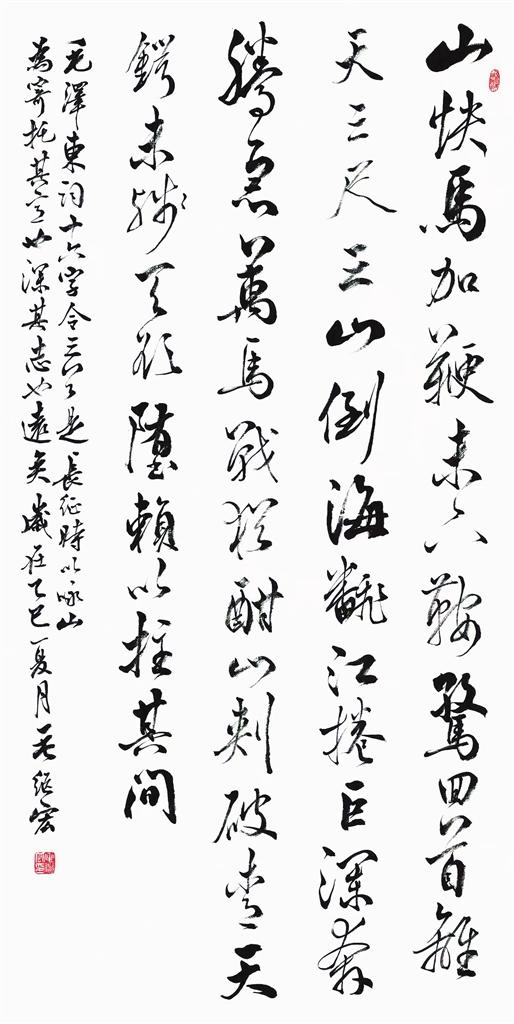 山快馬加鞭未下鞍驚回首離
天三尺三山倒海翻江捲巨瀾奔
騰急萬馬戰猶酣山刺破青天
鍔未殘天欲墮賴以拄其間
毛澤東詞十六字令三是長征時以詠山
為寄托其意也深其志也遠矣歲在乙巳夏月宏